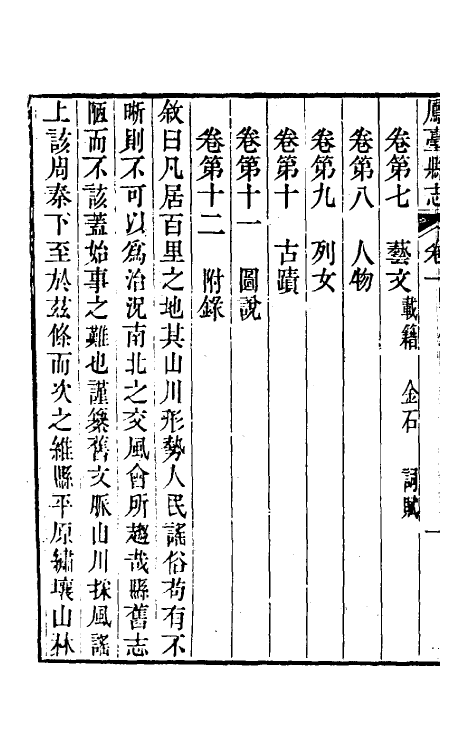 鳳臺縣志 卷一 一
卷第七 藝文 載籍 金石 詞賦
卷第八 人物
卷第九 列女
卷第十 古蹟
卷第十一 圖說
卷第十二 附錄
敘曰凡居百里之地其山川形勢人民謠俗苟有不
晰則不可以爲治況南北之交風會所趨哉縣舊志
陋而不該蓋始事之難也謹槩舊文脈山川採風謠
上該周秦下至於茲條而次之維縣平原繡壤山林